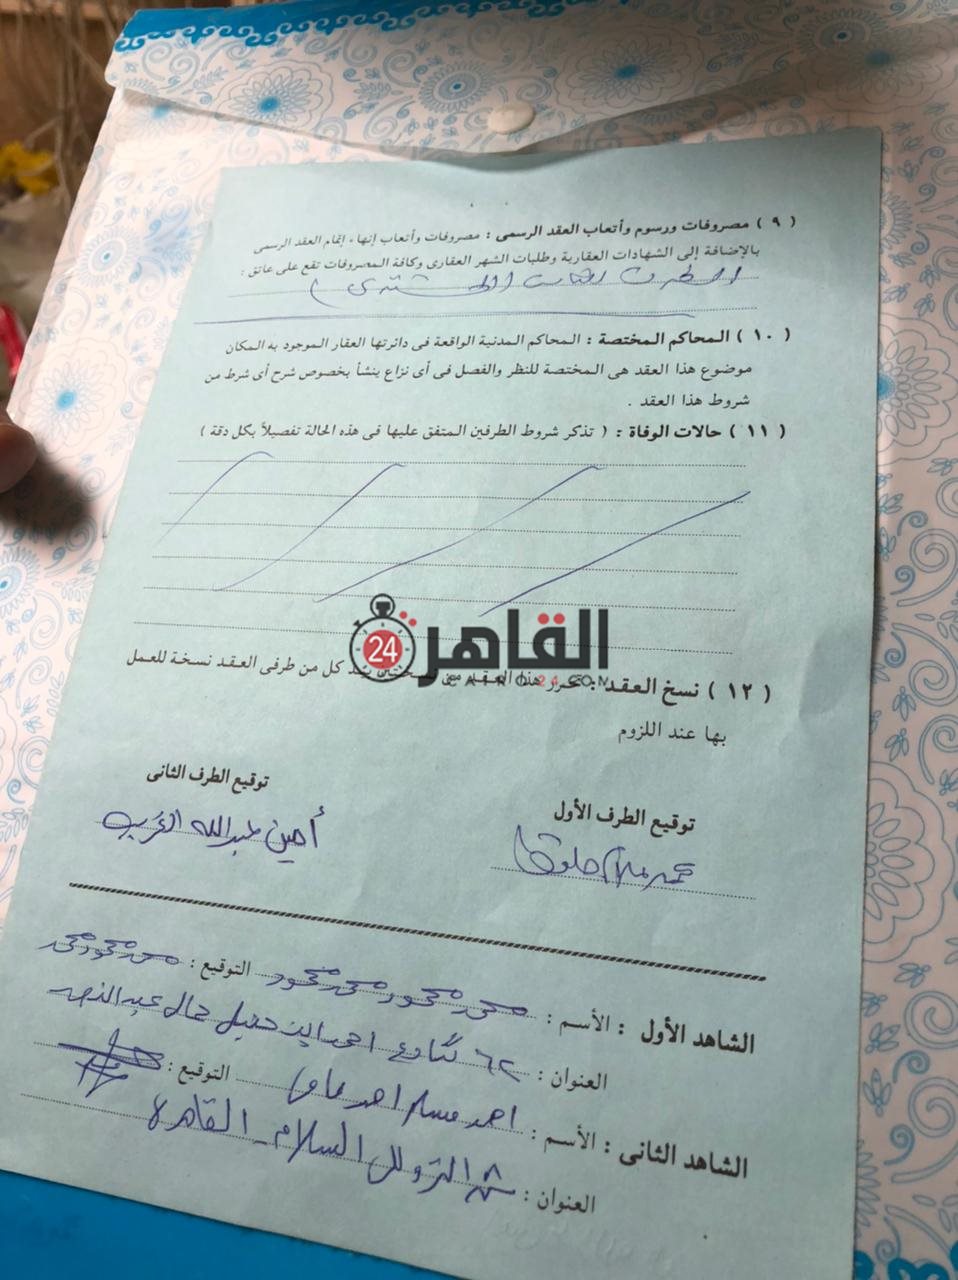 ( ٩ ) مصروفات ورسوم وأتعاب العقد الرسمى : مصروفات وأتعاب إنهاء إتمام العقد الرسمى
بالإضافة إلى الشهادات العقارية وطلبات الشهر العقارى وكافة المصروفات تقع على عاتق :
الطرف الثانى ( المشترى )
( ١٠ ) المحاكم المختصة : المحاكم المدنية الواقعة فى دائرتها العقار الموجود به المكان
موضوع هذا العقد هى المختصة للنظر والفصل فى أى نزاع ينشأ بخصوص شرح أى شرط من
شروط هذا العقد .
( ١١ ) حالات الوفاة : ( تذكر شروط الطرفين المتفق عليها فى هذه الحالة تفصيلاً بكل دقة )
القاهرة 24
CAIRO24.COM
( ١٢ ) نسخ العقد : تحرر هذا العقد من نسختين بيد كل من طرفى العقد نسخة للعمل
بها عند اللزوم
توقيع الطرف الأول
توقيع الطرف الثانى
أمين عبدالله الغريب
الشاهد الأول : الأسم : محمد محمود محمد محمود التوقيع : محمد محمود محمد
العنوان : ٦٢ شارع احمد ابن حنبل جمال عبد الناصر
الشاهد الثانى : الأسم : احمد احمد التوقيع :
العنوان : ش السلام - القاهرة